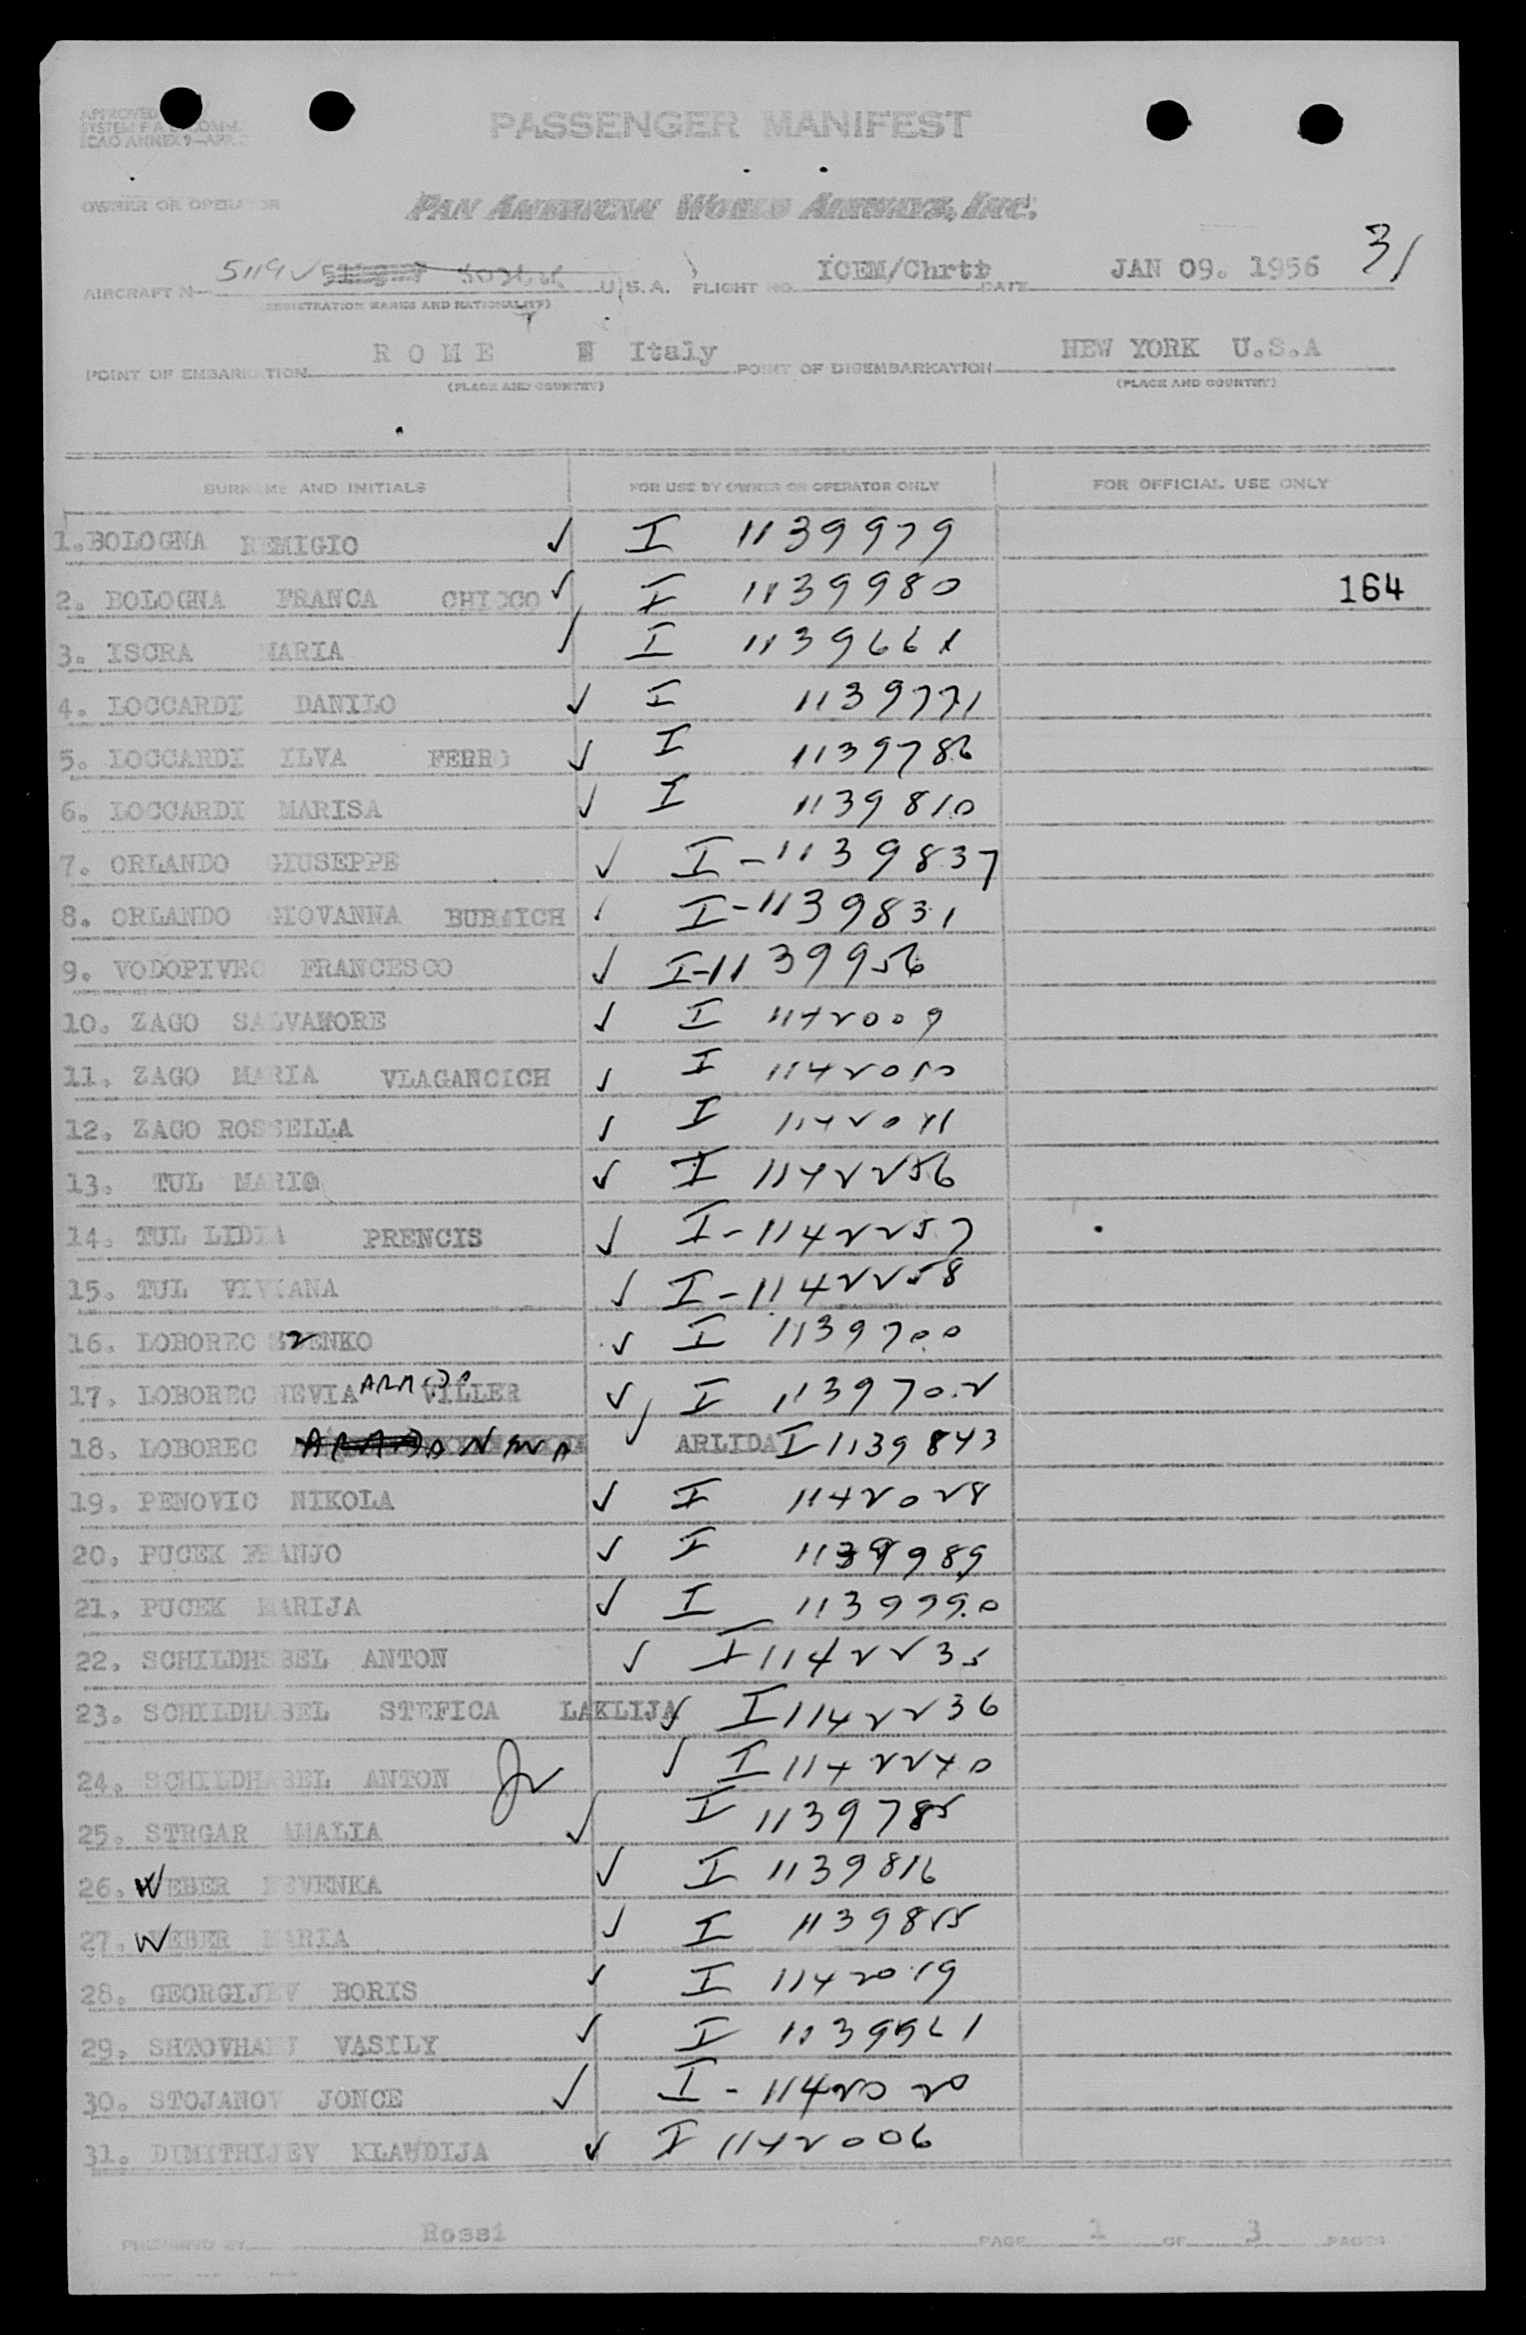 APPROVED
SYSTEM F A L COMM.
ICAO ANNEX 9—APR.
PASSENGER MANIFEST
OWNER OR OPERATOR
PAN AMERICAN WORLD AIRWAYS, INC.
31
AIRCRAFT N 5119V U.S.A. FLIGHT NO. ICEM/Chrtr DATE JAN 09. 1956
(REGISTRATION MARKS AND NATIONALITY)
POINT OF EMBARKATION ROME Italy POINT OF DISEMBARKATION NEW YORK U.S.A
(PLACE AND COUNTRY) (PLACE AND COUNTRY)
SURNAME AND INITIALS FOR USE BY OWNER OR OPERATOR ONLY FOR OFFICIAL USE ONLY
1. BOLOGNA REMIGIO ✓ I 1139979
2. BOLOGNA FRANCA CHICCO ✓ I 1139980 164
3. ISCRA MARIA ✓ I 1139661
4. LOCCARDI DANILO ✓ I 1139771
5. LOCCARDI ILVA FERRO ✓ I 1139786
6. LOCCARDI MARISA ✓ I 1139810
7. ORLANDO GIUSEPPE ✓ I-1139837
8. ORLANDO GIOVANNA I-1139831
9. VODOPIVEC FRANCESCO ✓ I-1139956
10. ZAGO SALVATORE ✓ I 1142009
11. ZAGO MARIA VLAGANCICH ✓ I 1142010
12. ZAGO ROSSELLA ✓ I 1142011
13. TUL MARIO ✓ I 1142256
14. TUL LIDIA PRENCIS ✓ I-1142257
15. TUL VIVIANA ✓ I-1142258
16. LOBOREC ZDENKO ✓ I 1139700
17. LOBOREC NEVIA VILLER ✓ I 1139702
18. LOBOREC ✓ ARLIDA I 1139843
19. PENOVIC NIKOLA ✓ I 1142028
20. PUCEK FRANJO ✓ I 1139989
21. PUCEK MARIJA ✓ I 1139990
22. SCHILDHABEL ANTON ✓ I 1142235
23. SCHILDHABEL STEFICA LAKLIJA ✓ I 1142236
24. SCHILDHABEL ANTON Jr ✓ I 1142240
25. STRGAR AMALIA ✓ I 1139785
26. WEBER NEVENKA ✓ I 1139816
27. WEBER MARIA ✓ I 1139815
28. GEORGIJEV BORIS ✓ I 1142019
29. VASILY ✓ I
30. STOJANOV JONCE ✓ I-1142020
31. DIMITRIJEV KLAUDIJA ✓ I 1142006
PREPARED BY Rossi PAGE 1 OF 3 PAGES